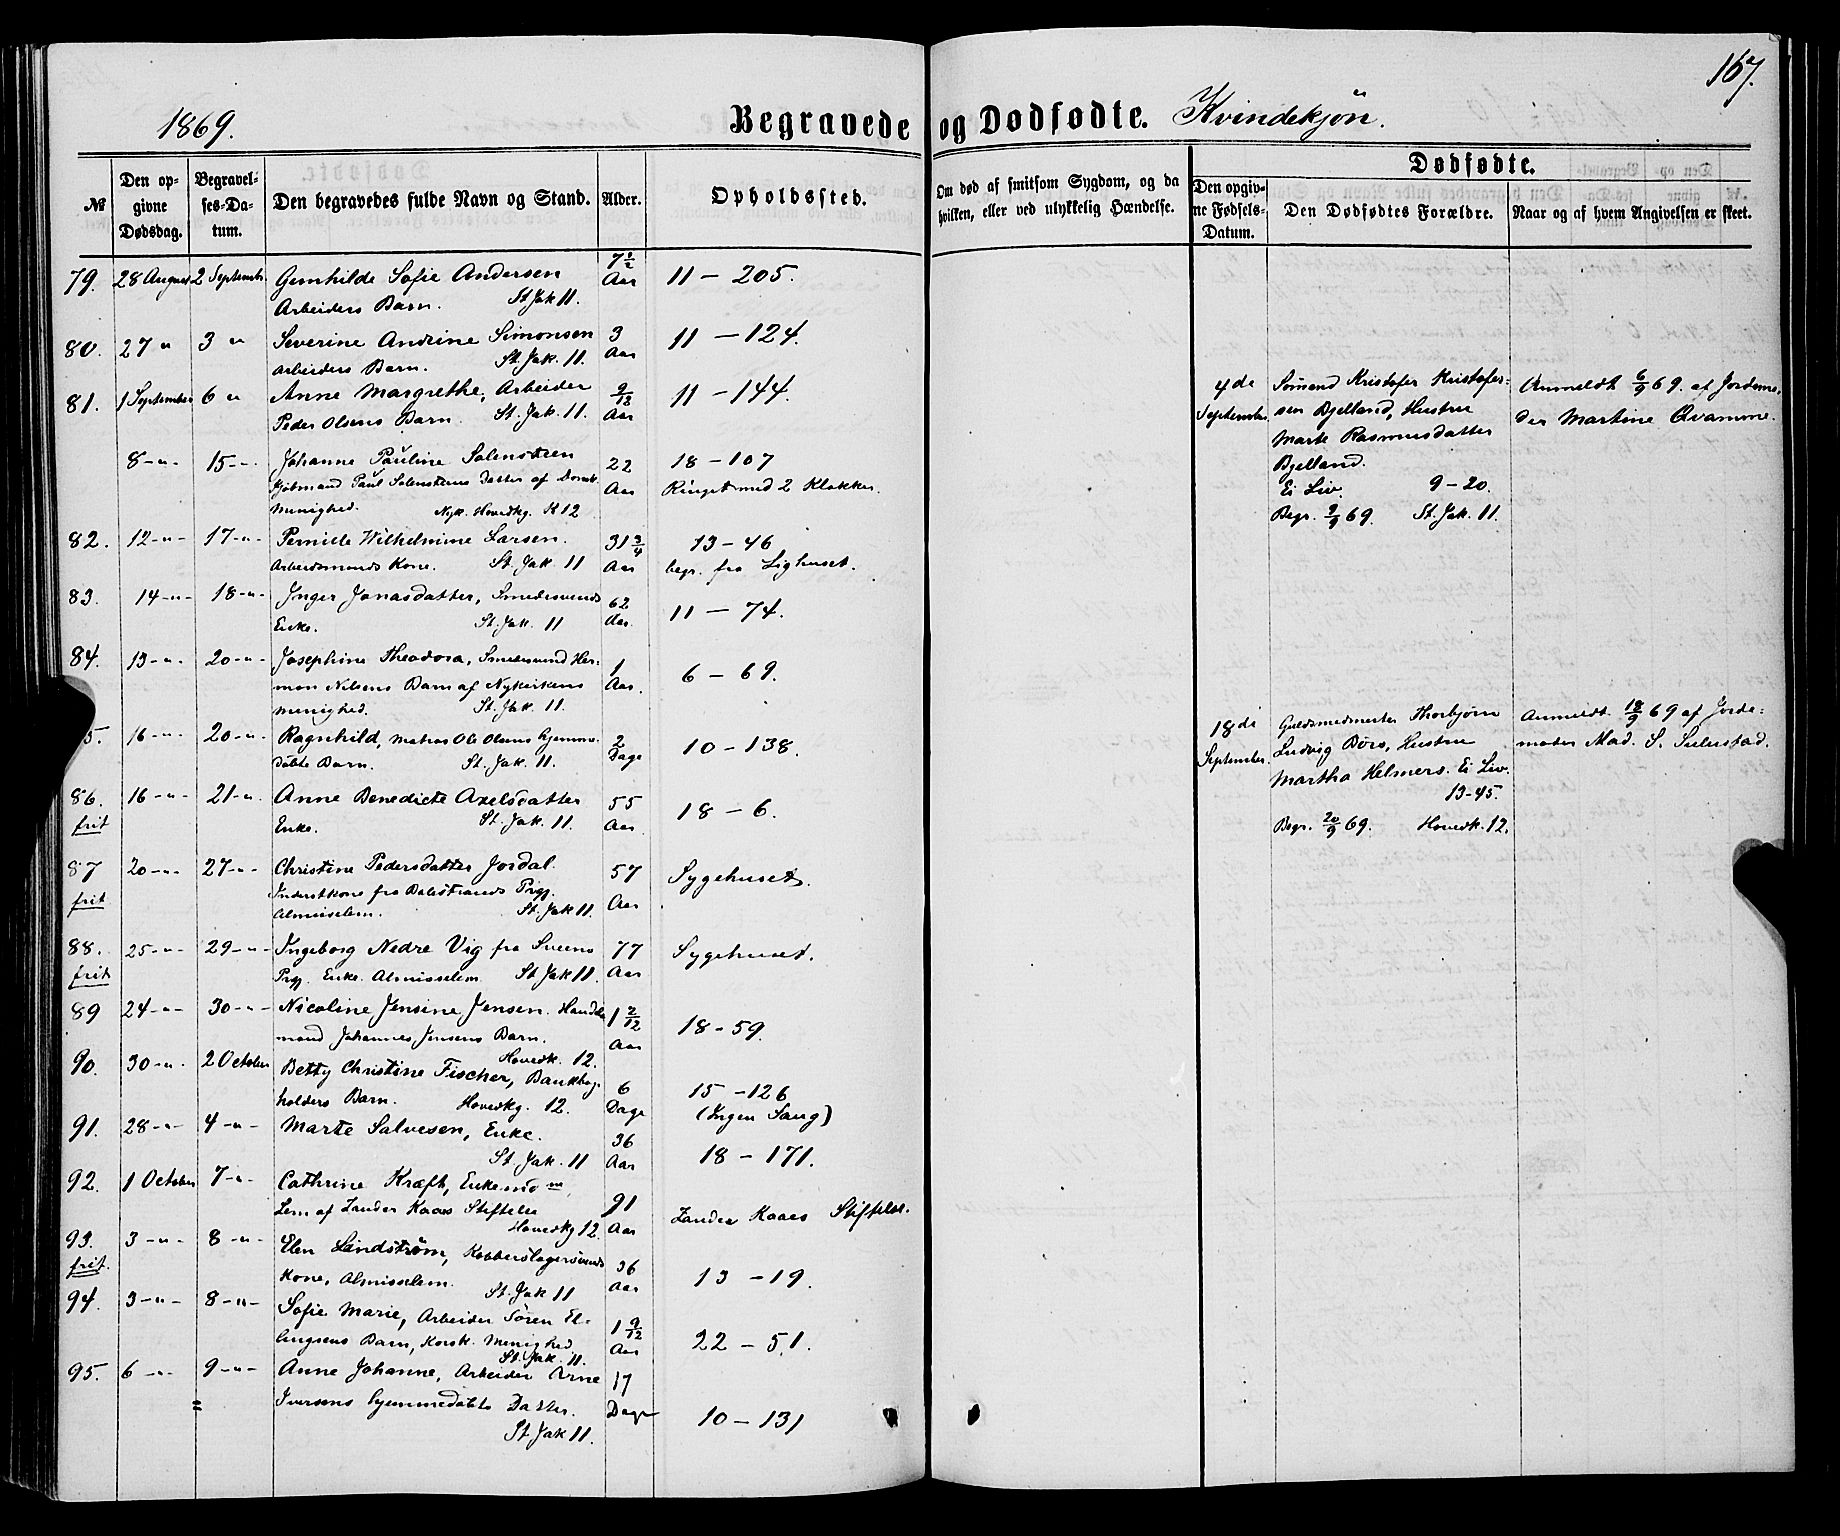 167.
1869.
Begravede og Dødfødte. Kvindekjøn.
№
Den opgivne Dødsdag.
Begravelses-Datum.
Den begravedes fulde Navn og Stand.
Alder.
Opholdssted.
Om død af smitsom Sygdom, og da hvilken, eller ved ulykkelig Hændelse.
Dødfødte.
Den opgivne Fødsels-Datum.
Den Dødfødtes Forældre.
Naar og af hvem Angivelsen er skeet.
79. 28 August 2 Septembr. Gunhilde Sofie Andersen 7 1/2 Aar 11 - 205.
Arbeiders Barn. St. Jak 11.
80. 27 " 3 " Severine Andrine Simonsen 3 Aar 11 - 124.
Arbeiders Barn. St. Jak. 11.
81. 1 September 6 " Anne Margrethe, Arbeider Aar 11 - 144.
Peder Olsens Barn. St. Jak. 11.
8 - " - 15 - " Johanne Pauline Solemsteen 22 Aar 18 - 107
Kjøbmand Paul Datter af Domk. Ringet med 2 Klokker.
Menighed. Nyk. Hovedkg. K 12
82. 12 - " - 17 - " - Pernille Wilhelmine Larsen. 31 3/4 Aar 13 - 46
Arbeidsmands Kone. St. Jak. 11 begr. fra Lighuset.
83. 14 - " - 18 - " - Inger Jonasdatter, Smedesvends 62 Aar. 11 - 74.
Enke. St. Jak. 11
84. 13 - " - 20 - " - Josephine Theodora, Smedesvend Her- 1 Aar. 6 - 69.
man Nilsens Barn af Nykirkens
Menighed. St. Jak. 11.
5. 16 - " - 20 - " Ragnhild, Matros Ole Olsens hjemme- 2 Dage 10 - 138.
døbte Barn. St. Jak. 11.
86. 16 - " - 21 - " Anne Benedicte Axelsdatter 55 Aar. 18 - 6.
frit Enke. St. Jak. 11.
87 20 - " - 27 - " - Christine Pedersdatter Jordal 57 Aar Sygehuset.
frit Inderstkone fra Balestrands Prgj.
Almisselem. St. Jak 11.
88. 25 - " - 29 - " - Ingeborg Nedre Vig fra Sveens 77 Aar Sygehuset.
frit Prgj. Enke. Almisselem St. Jak 11.
89 24 - " - 30 - " - Nicoline Jensine Jensen. Handels 1 2/12 Aar 18 - 59.
mand Johannes Jensens Barn.
Hovedk. 12.
90. 30 - " - 2 October Betty Christine Fischer, Bankbog- 6 Dage 15 - 126
holders Barn. Hovedkg. 12. (Ingen Sang)
91. 28 - " - 4 - " - Marte Salvesen, Enke. 36 Aar 18 - 171.
St. Jak. 11
92. 1 October 7 - " Cathrine Kræft, Enkemdme 91 Aar Zander Kaaes Stiftelse.
Lem af Zander Kaaes Stiftelse
Hovedkg 12.
93. 3 - " - 8 - " - Elen Lindstrøm, Kobberslagersvends 36 Aar 13 - 19.
frit. Kone, Almisselem. St. Jak 11
94. 3 - " - 8 - " - Sofie Marie, Arbeider Søren El- 1 9/12 Aar 22 - 51.
lingsens Barn, Korsk. Menighed.
St. Jak. 11.
95. 6 - " - 9 - " - Anne Johanne, Arbeider Arne 17 Dage 10 - 131
Iversens hjemmedøbte Datter.
St. Jak 11.
4de September. Sømand Kristofer Kristofer-
sen Bjelland, Hustru
Marte Rasmusdatter
Bjelland.
Ei Liv. 9 - 20.
Begr. 9/9 69. St. Jak. 11.
Anmeldt 6/9 69. af Jordemo-
der Martine Qvamme.
18de September. Guldsmedmester Thorbjørn
Ludvig Børs, Hustru
Martha Helmers. Ei Liv.
13-45.
Begr. 20/9 69. Hovedk. 12.
Anmeldt 18/9 69 af Jorde-
moder Mad. S.